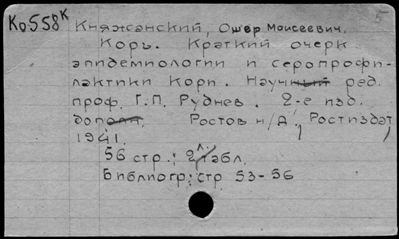 Ко558К Княжанский, Ошер Моисеевич.
Корь. Краткий очерк
эпидемиологии и серопрофи-
лактики Кори. Научный ред.
проф. Г.П. Руднев. 2-е изд.
дополн. Ростов н/Д, Ростиздат,
1941.
56 стр.; 2 л. табл.
Библиогр: стр 53-56